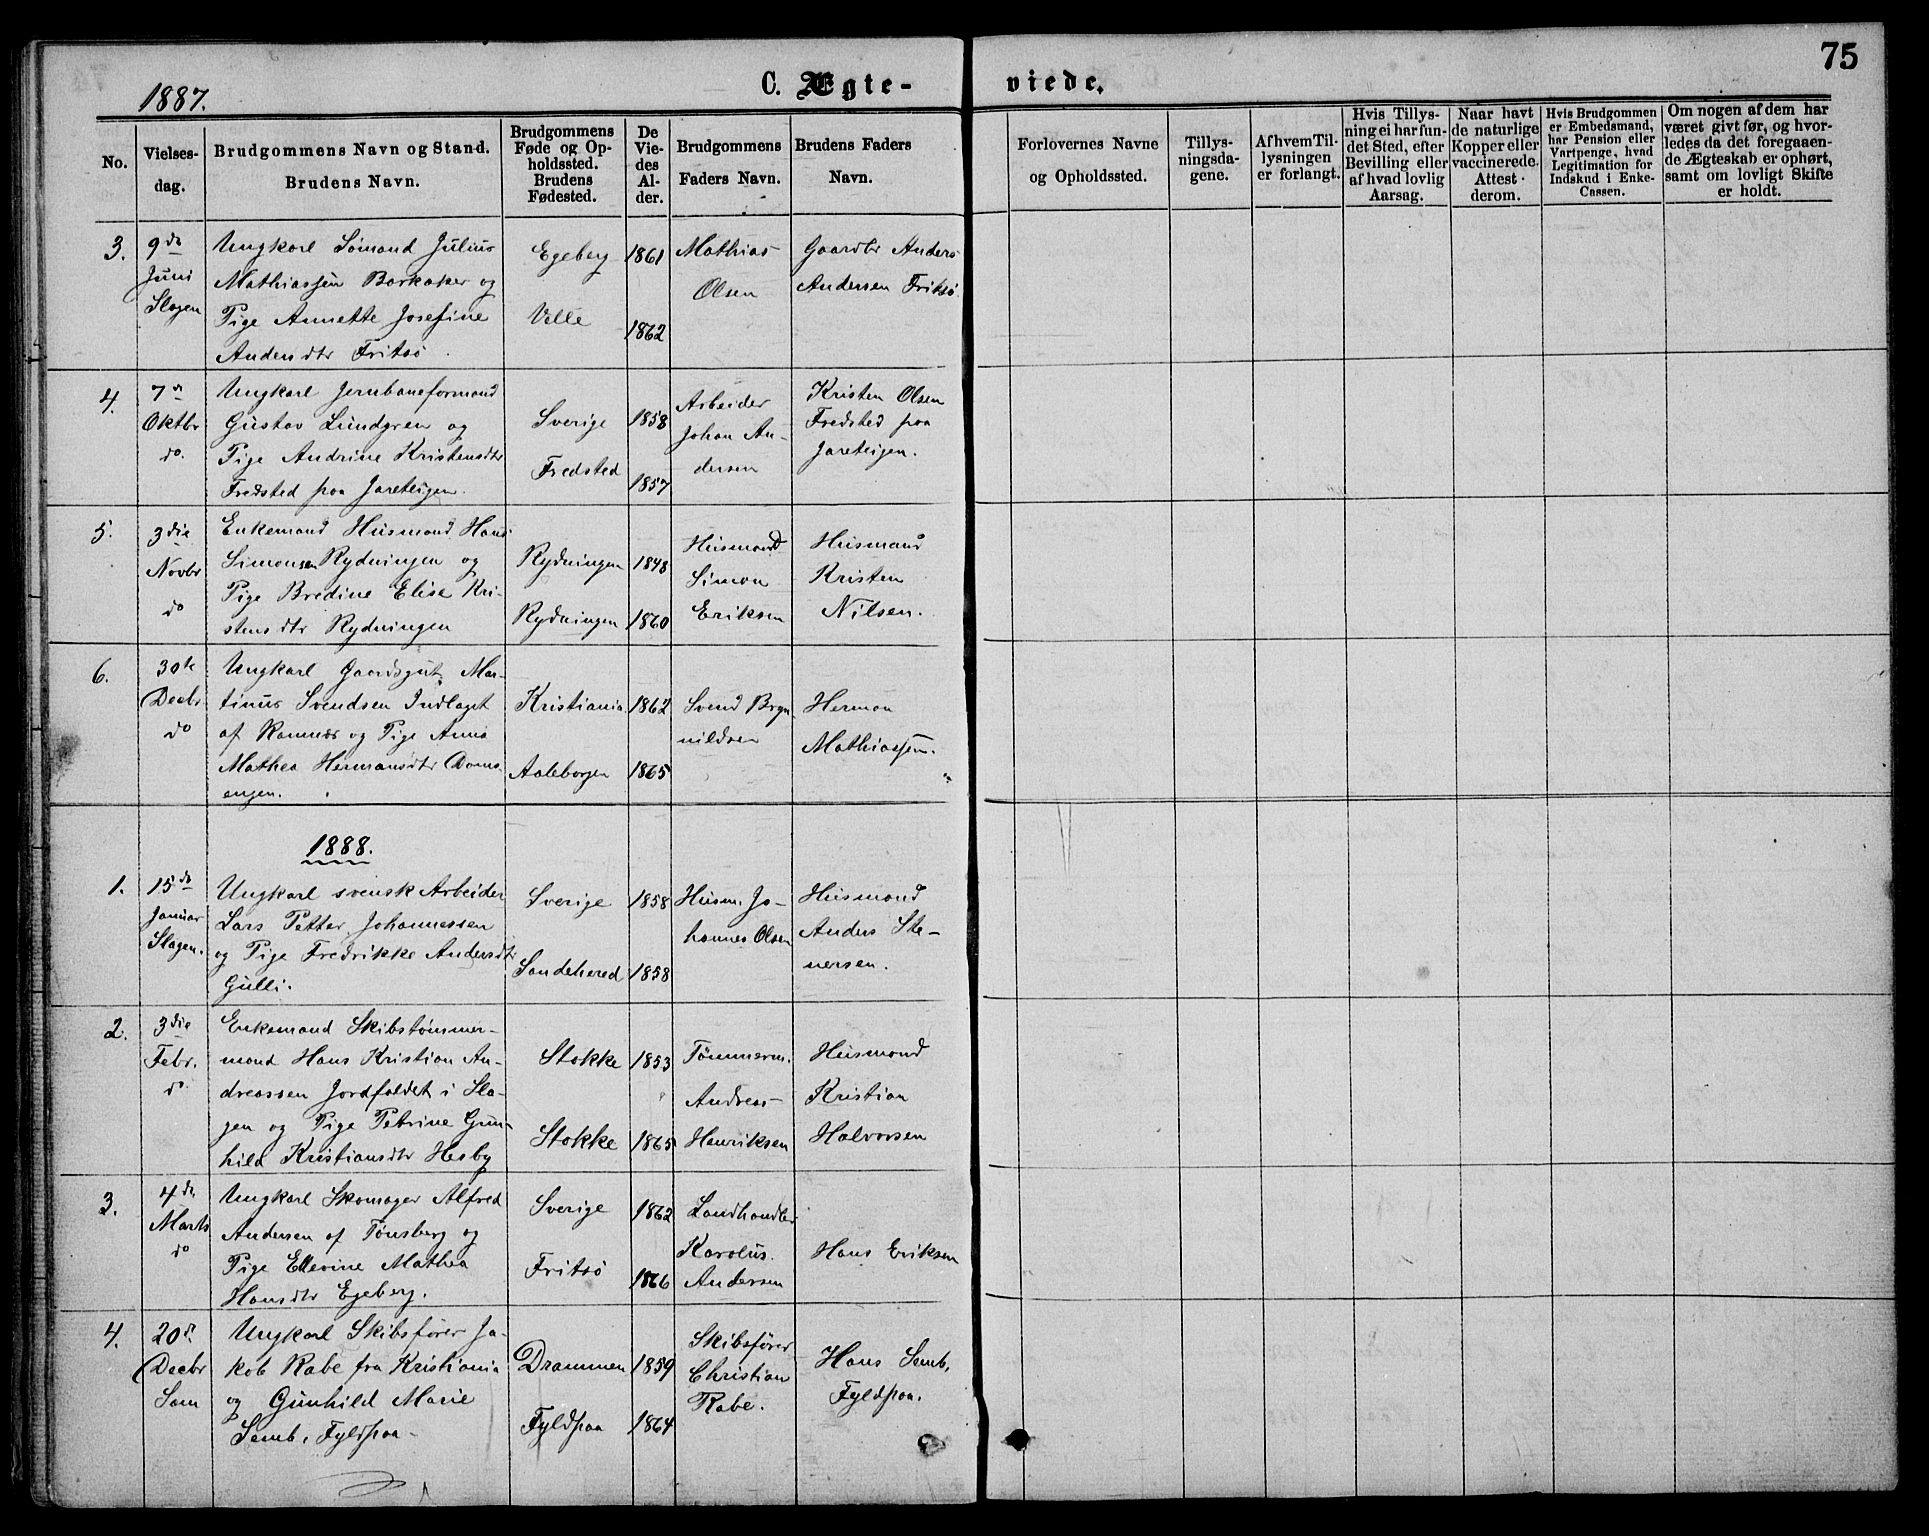 75
1887.
C. Ægte-
viede.
No.
Vielses-
dag.
Brudgommens Navn og Stand.
Brudens Navn.
Brudgommens
Føde og Op-
holdssted.
Brudens
Fødested.
De
Vie-
des
Al-
der.
Brudgommens
Faders Navn.
Brudens Faders
Navn.
Forlovernes Navne
og Opholdssted.
Tillys-
ningsda-
gene.
Af hvem Til-
lysningen
er forlangt.
Hvis Tillys-
ning ei har fun-
det Sted, efter
Bevilling eller
af hvad lovlig
Aarsag.
Naar havt
de naturlige
Kopper eller
vaccinerede.
Attest
derom.
Hvis Brudgommen
er Embedsmand,
har Pension eller
Vartpenge, hvad
Legitimation for
Indskud i Enke-
Cassen.
Om nogen af dem har
været givt før, og hvor-
ledes da det foregaaen-
de Ægteskab er ophørt,
samt om lovligt Skifte
er holdt.
3.
9de
Juni
Slagen
Ungkarl Sømand Julius
Mathiassen Borkaker og
Pige Annette Josefine
Andersdtr Fritsø.
Egeberg
Velle
1861
1862
Mathias
Olsen
Gaardbr Anders
Andersen Fritsø.
4.
7de
Oktbr
do.
Ungkarl Jernbaneformand
Gustav Lundgren og
Pige Andrine Kristensdtr
Fredsted paa Jareteigen.
Sverige
Fredsted
1858
1857
Arbeider
Johan An-
dersen
Kristen Olsen
Fredsted paa
Jareteigen.
5.
3die
Novbr
do
Enkemand Husmand Hans
Simonsen Rydningen og
Pige Bredine Elise Kri-
stensdtr Rydningen
Rydningen
Rydningen
1848
1860
Husmand
Simon
Eriksen
Husmand
Kristen
Nilsen.
6.
30te
Decbr
do
Ungkarl Gaardsgut Mar-
tinus Svendsen Indlaget
af Ramnæs og Pige Anna
Mathea Hermansdtr
engen.
Kristiania
Aaleborgen
1862
1865
Svend Bryn
nildsen
Herman
Mathiassen.
1888.
1.
15de
Januar
Slagen.
Ungkarl svensk Arbeider
Lars Petter Johannessen
og Pige Fredrikke Andersdtr
Gulli.
Sverige
Sandehered
1858
1858
Husm. Jo-
hannes Olsen
Husmand
Anders Ste-
nersen.
2.
3die
Febr.
do
Enkemand Skibstømmer-
mand Hans Kristian An-
dreassen Jordfaldet i Sla-
gen og Pige Petrine Gun-
hild Kristiansdtr Hesby
Stokke
Stokke
1853
1865
Tømmerm.
Andreas
Henriksen
Husmand
Kristian
Halvorsen
3.
4de
Marts
do
Ungkarl Skomager Alfred
Andersen af Tønsberg og
Pige Ellevine Mathea
Hansdtr Egeberg.
Sverige
Fritsø
1862
1866
Landhandler
Karolus
Andersen
Hans Eriksen
4.
20de
Decbr
Sem
Ungkarl Skibsfører Ja-
kob Rabe fra Kristiania
og Gunhild Marie
Semb, Fyldpaa.
Drammen
Fyldpaa
1859
1864
Skibsfører
Christian
Rabe.
Hans Semb,
Fyldpaa.